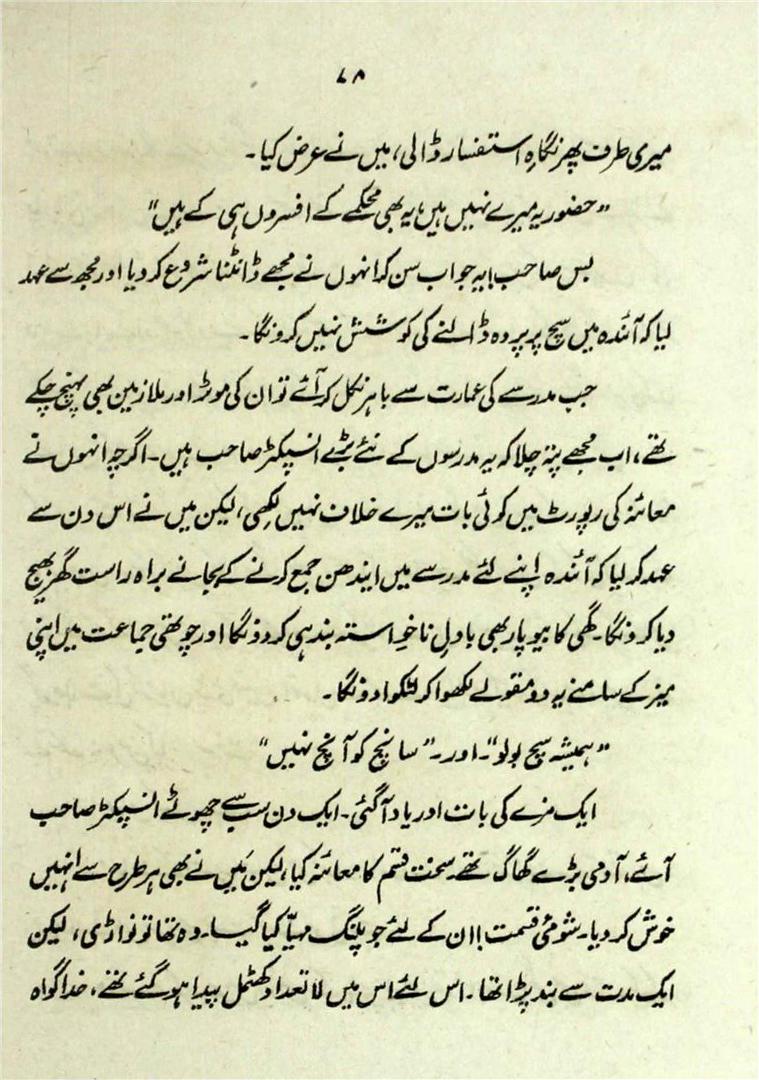 ۷۸
میری طرف پھر نگاہِ استفسار ڈالی، میں نے عرض کیا۔
"حضور یہ میرے نہیں ہیں، یہ بھی محکمے کے افسروں ہی کے ہیں"
بس صاحب! یہ جواب سن کر انہوں نے مجھے ڈانٹنا شروع کر دیا اور مجھ سے عہد
لیا کہ آئندہ میں سچ پر پردہ ڈالنے کی کوشش نہیں کرونگا۔
جب مدرسے کی عمارت سے باہر نکل کر آئے تو ان کی موٹر اور ملازمین بھی پہنچ چکے
تھے، اب مجھے پتہ چلا کہ یہ مدرسوں کے نئے بڑے انسپکٹر صاحب ہیں۔ اگرچہ انہوں نے
معائنہ کی رپورٹ میں کوئی بات میرے خلاف نہیں لکھی، لیکن میں نے اس دن سے
عہد کر لیا کہ آئندہ اپنے لئے مدرسے میں ایندھن جمع کرنے کے بجائے براہ راست گھر بھیج
دیا کرونگا۔ گھی کا بیوپار بھی بادلِ ناخواستہ بند ہی کر دونگا اور چوتھی جماعت میں اپنی
میز کے سامنے یہ دو مقولے لکھوا کر لٹکوا دونگا۔
"ہمیشہ سچ بولو"۔ اور۔ "سانچ کو آنچ نہیں"
ایک مزے کی بات اور یاد آ گئی۔ ایک دن سب سے چھوٹے انسپکٹر صاحب
آئے، آدمی بڑے گھاگ تھے۔ سخت قسم کا معائنہ کیا، لیکن مَیں نے بھی ہر طرح سے انہیں
خوش کر دیا۔ شومئی قسمت! ان کے لئے جو پلنگ مہیّا کیا گیا۔ وہ تھا تو نواڑی، لیکن
ایک مدت سے بند پڑا تھا۔ اس لئے اس میں لا تعداد کھٹمل پیدا ہو گئے تھے، خدا گواہ